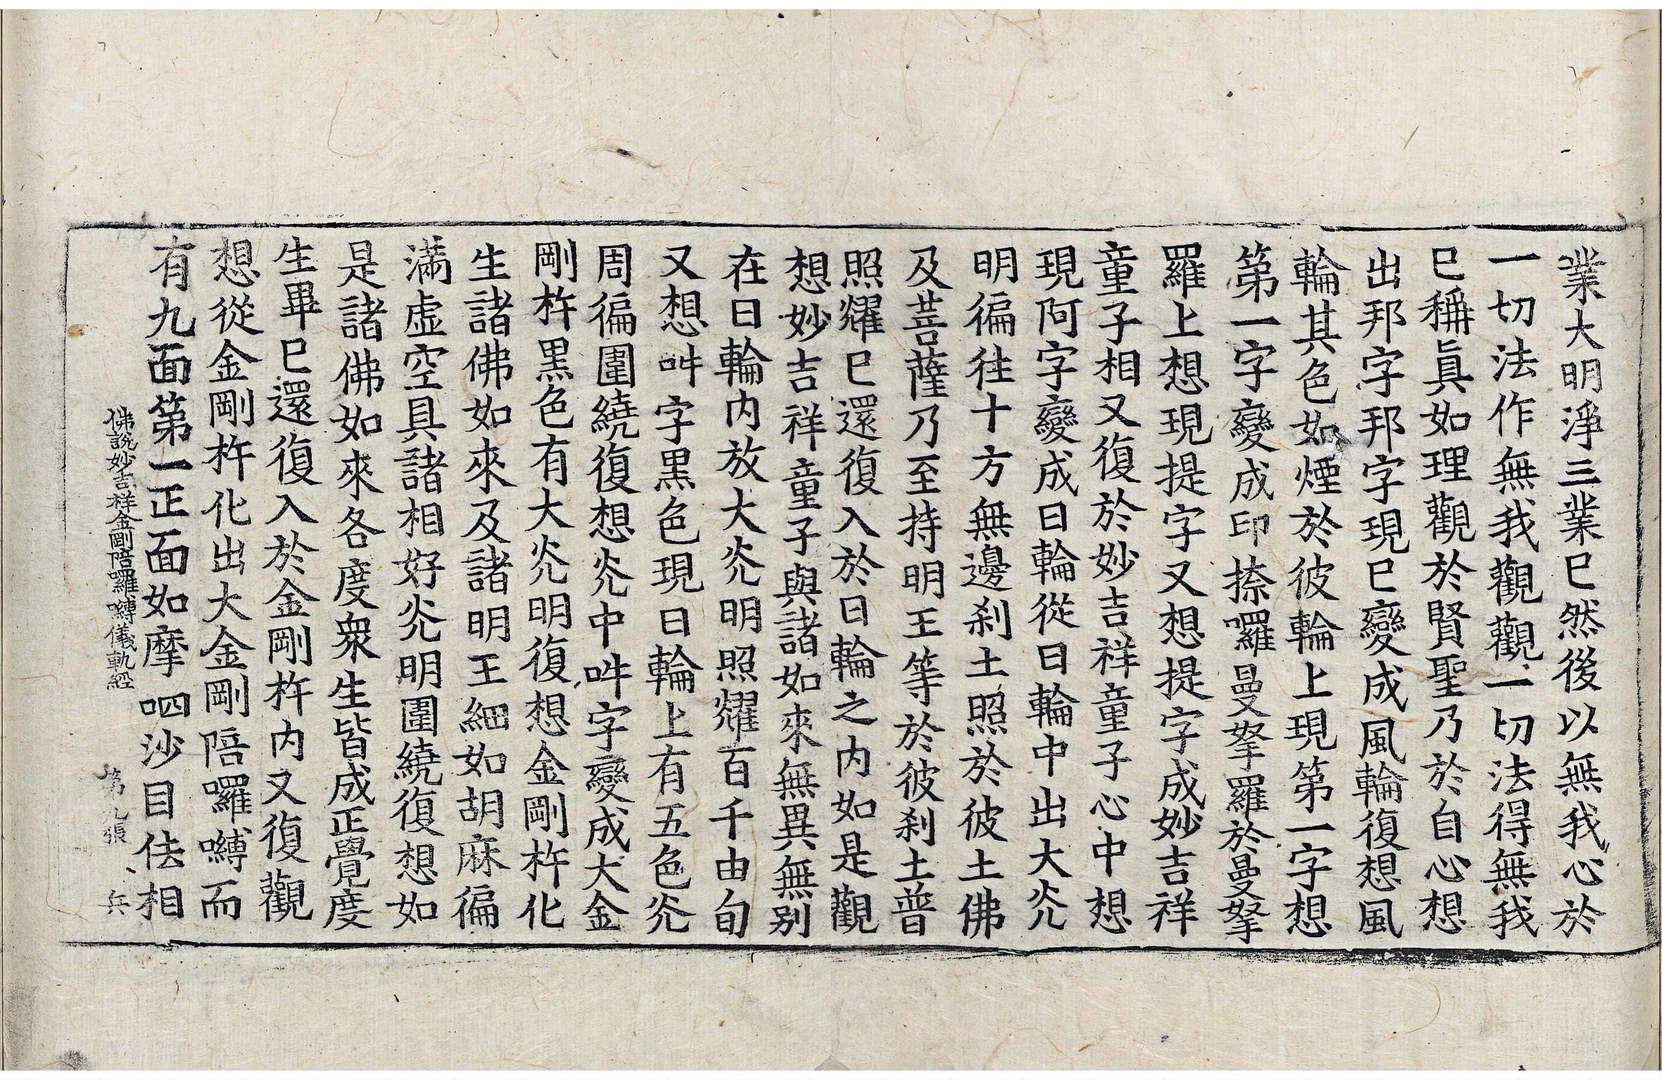 業大明淨三業已然後以無我心於
一切法作無我觀觀一切法得無我
已稱眞如理觀於賢聖乃於自心想
出邦字邦字現已變成風輪復想風
輪其色如煙於彼輪上現第一字想
第一字變成印捺囉曼拏羅於曼拏
羅上想現提字又想提字成妙吉祥
童子相又復於妙吉祥童子心中想
現阿字變成日輪從日輪中出大灮
明徧徃十方無邊刹土照於彼土佛
及菩薩乃至持明王等於彼刹土普
照耀已還復入於日輪之內如是觀
想妙吉祥童子與諸如來無異無别
在日輪內放大灮明照耀百千由旬
又想吽字黑色現日輪上有五色灮
周徧圍繞復想灮中吽字變成大金
剛杵黑色有大灮明復想金剛杵化
生諸佛如來及諸明王細如胡麻徧
滿虛空具諸相好灮明圍繞復想如
是諸佛如來各度衆生皆成正覺度
生畢已還復入於金剛杵內又復觀
想從金剛杵化出大金剛陪囉嚩而
有九面第一正面如摩呬沙目佉相
佛說妙吉祥金剛陪囉嚩儀軌經 第九張 兵